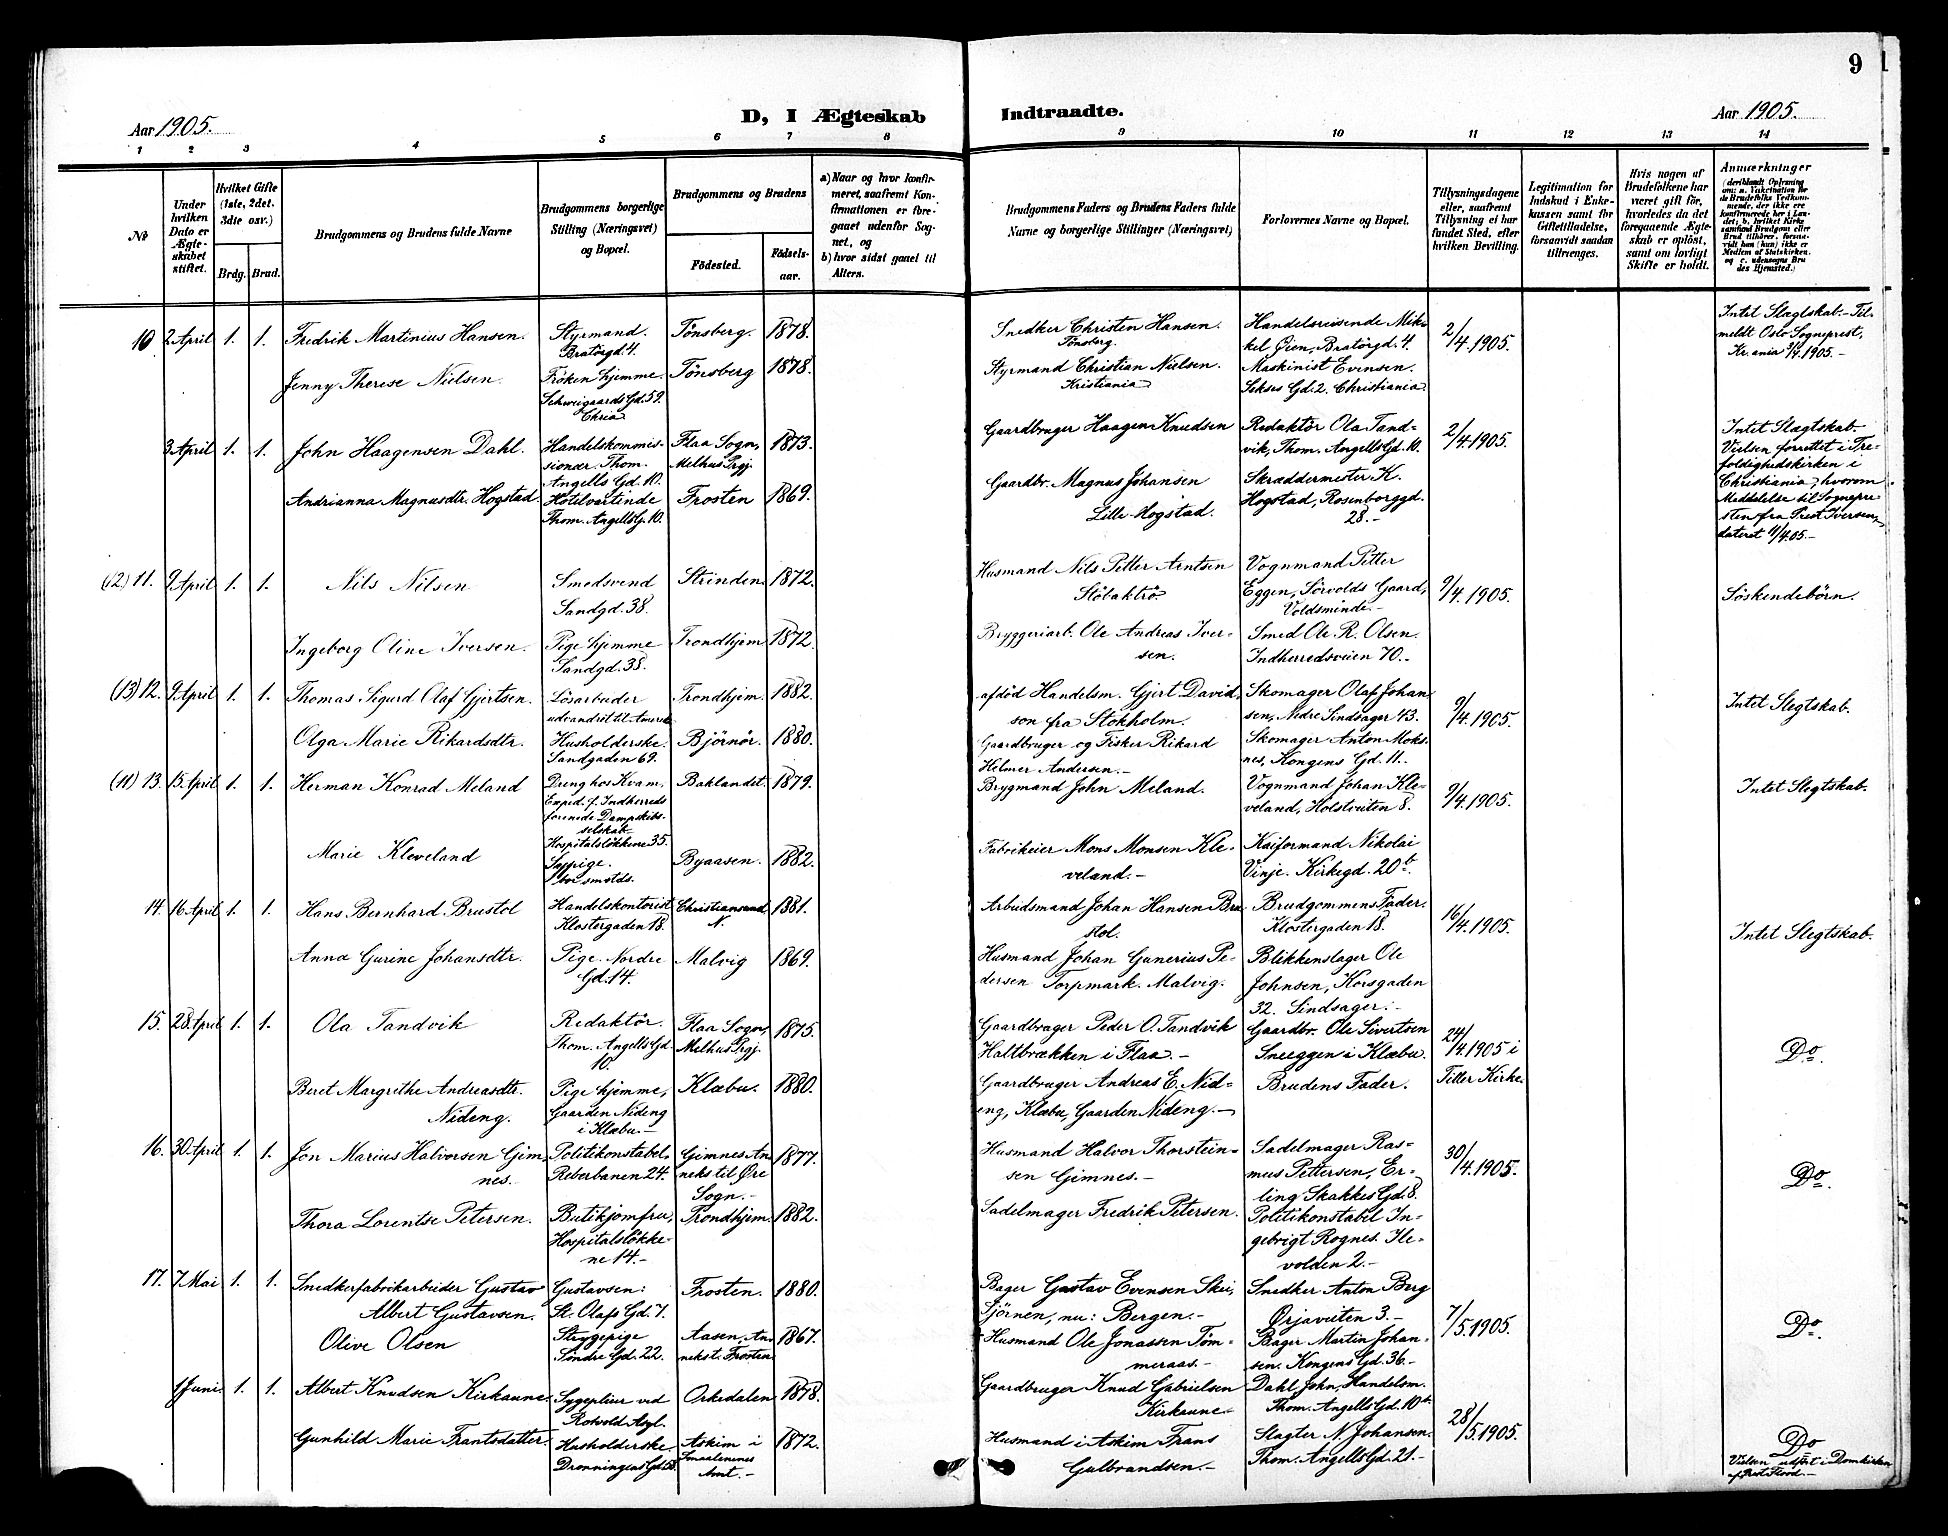 9
Aar 1905.
D, I Ægteskab
Indtraadte.
Aar 1905.
1 2 3 4 5 6 7 8 9 10 11 12 13 14
№
Under hvilken Dato er Ægteskabet stiftet.
Hvilket Gifte (1ste, 2det, 3die osv.)
Brdg. Brud.
Brudgommens og Brudens fulde Navne
Brudgommens borgerlige Stilling (Næringsvei) og Bopæl.
Brudgommens og Brudens
Fødested.
Fødselsaar.
a) Naar og hvor konfirmeret, saafremt Konfirmationen er foregaaet udenfor Sognet, og
b) hvor sidst gaaet til Alters.
Brudgommens Faders og Brudens Faders fulde Navne og borgerlige Stillinger (Næringsvei)
Forlovernes Navne og Bopæl.
Tillysningsdagene eller, saafremt Tillysning ei har fundet Sted, efter hvilken Bevilling.
Legitimation for Indskud i Enkekassen samt for Giftetilladelse, forsaavidt saadan tiltrænges.
Hvis nogen af Brudefolkene har været gift før, hvorledes da det foregaaende Ægteskab er opløst, samt om lovligt Skifte er holdt.
Anmærkninger
10 2 April 1. 1. Fredrik Martinius Hansen. Styrmand. Bratörgd. 4. Tönsberg. 1878. Snedker Christen Hansen. Tönsberg. Handelsreisende Mikkel Øien, Bratörgd. 4. 2/4.1905. Intet Slegtskab. - Tilmeldt Oslo Sogneprest,
Jenny Therese Nielsen. Fröken hjemme. Schweigaards Gd. 59. Chria. Tönsberg 1878. Styrmand Christian Nielsen. Kristiania Maskinist Evensen. Gd. 2. Christiania
3 April 1. 1. John Haagensen Dahl. Handelskommissionær Thom. Angells Gd. 10. Flaa Sogn, Melhus Prgj. 1873. Gaardbruger Haagen Knudsen Redaktör Ola Tandvik, Thom. Angells Gd. 10. 2/4.1905. Intet Slegtskab. Vielsen forrettet i Trefoldighedskirken i Christiania, hvorom Meddelelse til Sognepresten fra Prest Iversen, dateret 11/4.05.-
Andrianna Magnusdtr. Hogstad. Hotelvertinde Thom. Angells G. 10. Frosten 1869. Gaardbr. Magnus Johansen Lille-Hogstad. Skræddermester K. Hogstad, Rosenborggd. 28.-
(12) 11. 9 April 1. 1. Nils Nilsen Smedsvend Sandgd. 38. Strinden. 1872. Husmand Nils Petter Arntsen Stöbaktrö. Vognmand Petter Eggen, Sörvolds Gaard, Voldsminde.- 9/4.1905. Söskendebörn.
Ingeborg Oline Iversen. Pige hjemme Sandgd. 38. Trondhjem 1872. Bryggeriarb. Ole Andreas Iversen. Smed Ole R. Olsen. Indherredsveien 70.-
(13) 12. 9 April 1. 1. Thomas Sigurd Olaf Gjertsen. Lösarbeider Trondhjem. 1882. afdöd Handelsm. Gjert Davidson fra Stokholm. Skomager Olaf Johansen, Nedre Sindsager 43. 9/4.1905. Intet Slegtskab.
Olga Marie Rikardsdtr. Husholderske. Sandgaden 69. Björnör. 1880. Gaardbruger og Fisker Rikard Helmer Andersen.- Skomager Anton Moksnes, Kongens Gd. 11.-
(11) 13. 15 April 1. 1. Herman Konrad Meland Dreng hos Kvam, Exped. f. Indherreds forenede Dampskibsselskab Hospitalslökkene 35. Baklandet. 1879. Brygmand John Meland. Vognmand Johan Kleveland, Holstveiten 8. 9/4.1905. Intet Slegtskab.
Marie Kleveland Sypige. Byaasen. 1882. Fabrikeier Mons Monsen Kleveland.- Kaiformand Nikolai Vinje. Kirkegd. 20b.
14. 16 April 1. 1. Hans Bernhard Brustol Handelskontorist Klostergaden 18. Christiansund N. 1881. Arbeidsmand Johan Hansen Brustol. Brudgommens Fader. Klostergaden 18. 16/4.1905. Intet Slegtskab.
Anna Gurine Johansdtr. Pige. Nordre Gd. 14. Malvig 1869. Husmand Johan Gunerius Pedersen Torpmark. Malvig. Blikkenslager Ole Johnsen, Korsgaden 32. Sindsager.-
15. 28 April 1. 1. Ola Tandvik Redaktör. Thom. Angells Gd. 10. Flaa Sogn, Melhus Prgj. 1875. Gaardbruger Peder O. Tandvik Haltbrækken i Flaa.- Gaardbr. Ole Sivertsen Sneeggen i Klæbu. 24/4.1905 i Tiller Kirke. Do.
Beret Margrethe Andreasdtr. Nideng. Pige hjemme, Gaarden Nideng i Klæbu.- Klæbu. 1880. Gaardbruger Andreas E. Nideng, Klæbu, Gaarden Nideng.- Brudens Fader.
16. 30 April 1. 1. Jon Marius Halvorsen Gimnes. Politikonstabel. Reberbanen 24. Gimnes Anneks til Øre Sogn.- 1877. Husmand Halvor Thorsteinsen Gimnes.- Sadelmager Rasmus Pettersen, Erling Skakkes Gd. 8. 30/4.1905. Do.
Thora Lorentse Petersen. Butikjomfru, Hospitalslökkene 14.- Trondhjem. 1882. Sadelmager Fredrik Petersen. Politikonstabel Ingebrigt Rognes. Ilevolden 2.-
17. 7 Mai 1. 1. Snedkerfabrikarbeider Gustav Albert Gustavsen. Gustavsen: St. Olafs Gd. 7. Frosten. 1880. Bager Gustav Evensen Skei, Sjörnen, nu: Bergen.- Snedker Anton Berg Ørjaveiten 3.- 7/5.1905. Do.
Olive Olsen Strygepige Söndre Gd. 22. Aasen, Annekst. Frosten 1867. Husmand Ole Jonassen Tömmeraas.- Bager Martin Johansen. Kongens Gd. 36.-
1 Juni. 1. 1. Albert Knudsen Kirkaune. Sygepleier ved Rotvold Asyl. Orkedalen 1878. Gaardbruger Knud Gabrielsen Kirkaune- Dahl John, Handelsm. Thom. Angells Gd. 10b. 28/5.1905. Do
Gunhild Marie Frantsdatter. Husholderske. Dronningens Gd. Askim i Smaalenenes Amt.- 1872. Husmand i Askim Frans Gulbrandsen.- Slagter N. Johansen. Thom. Angells Gd. 21.- Vielsen udfört i Domkirken